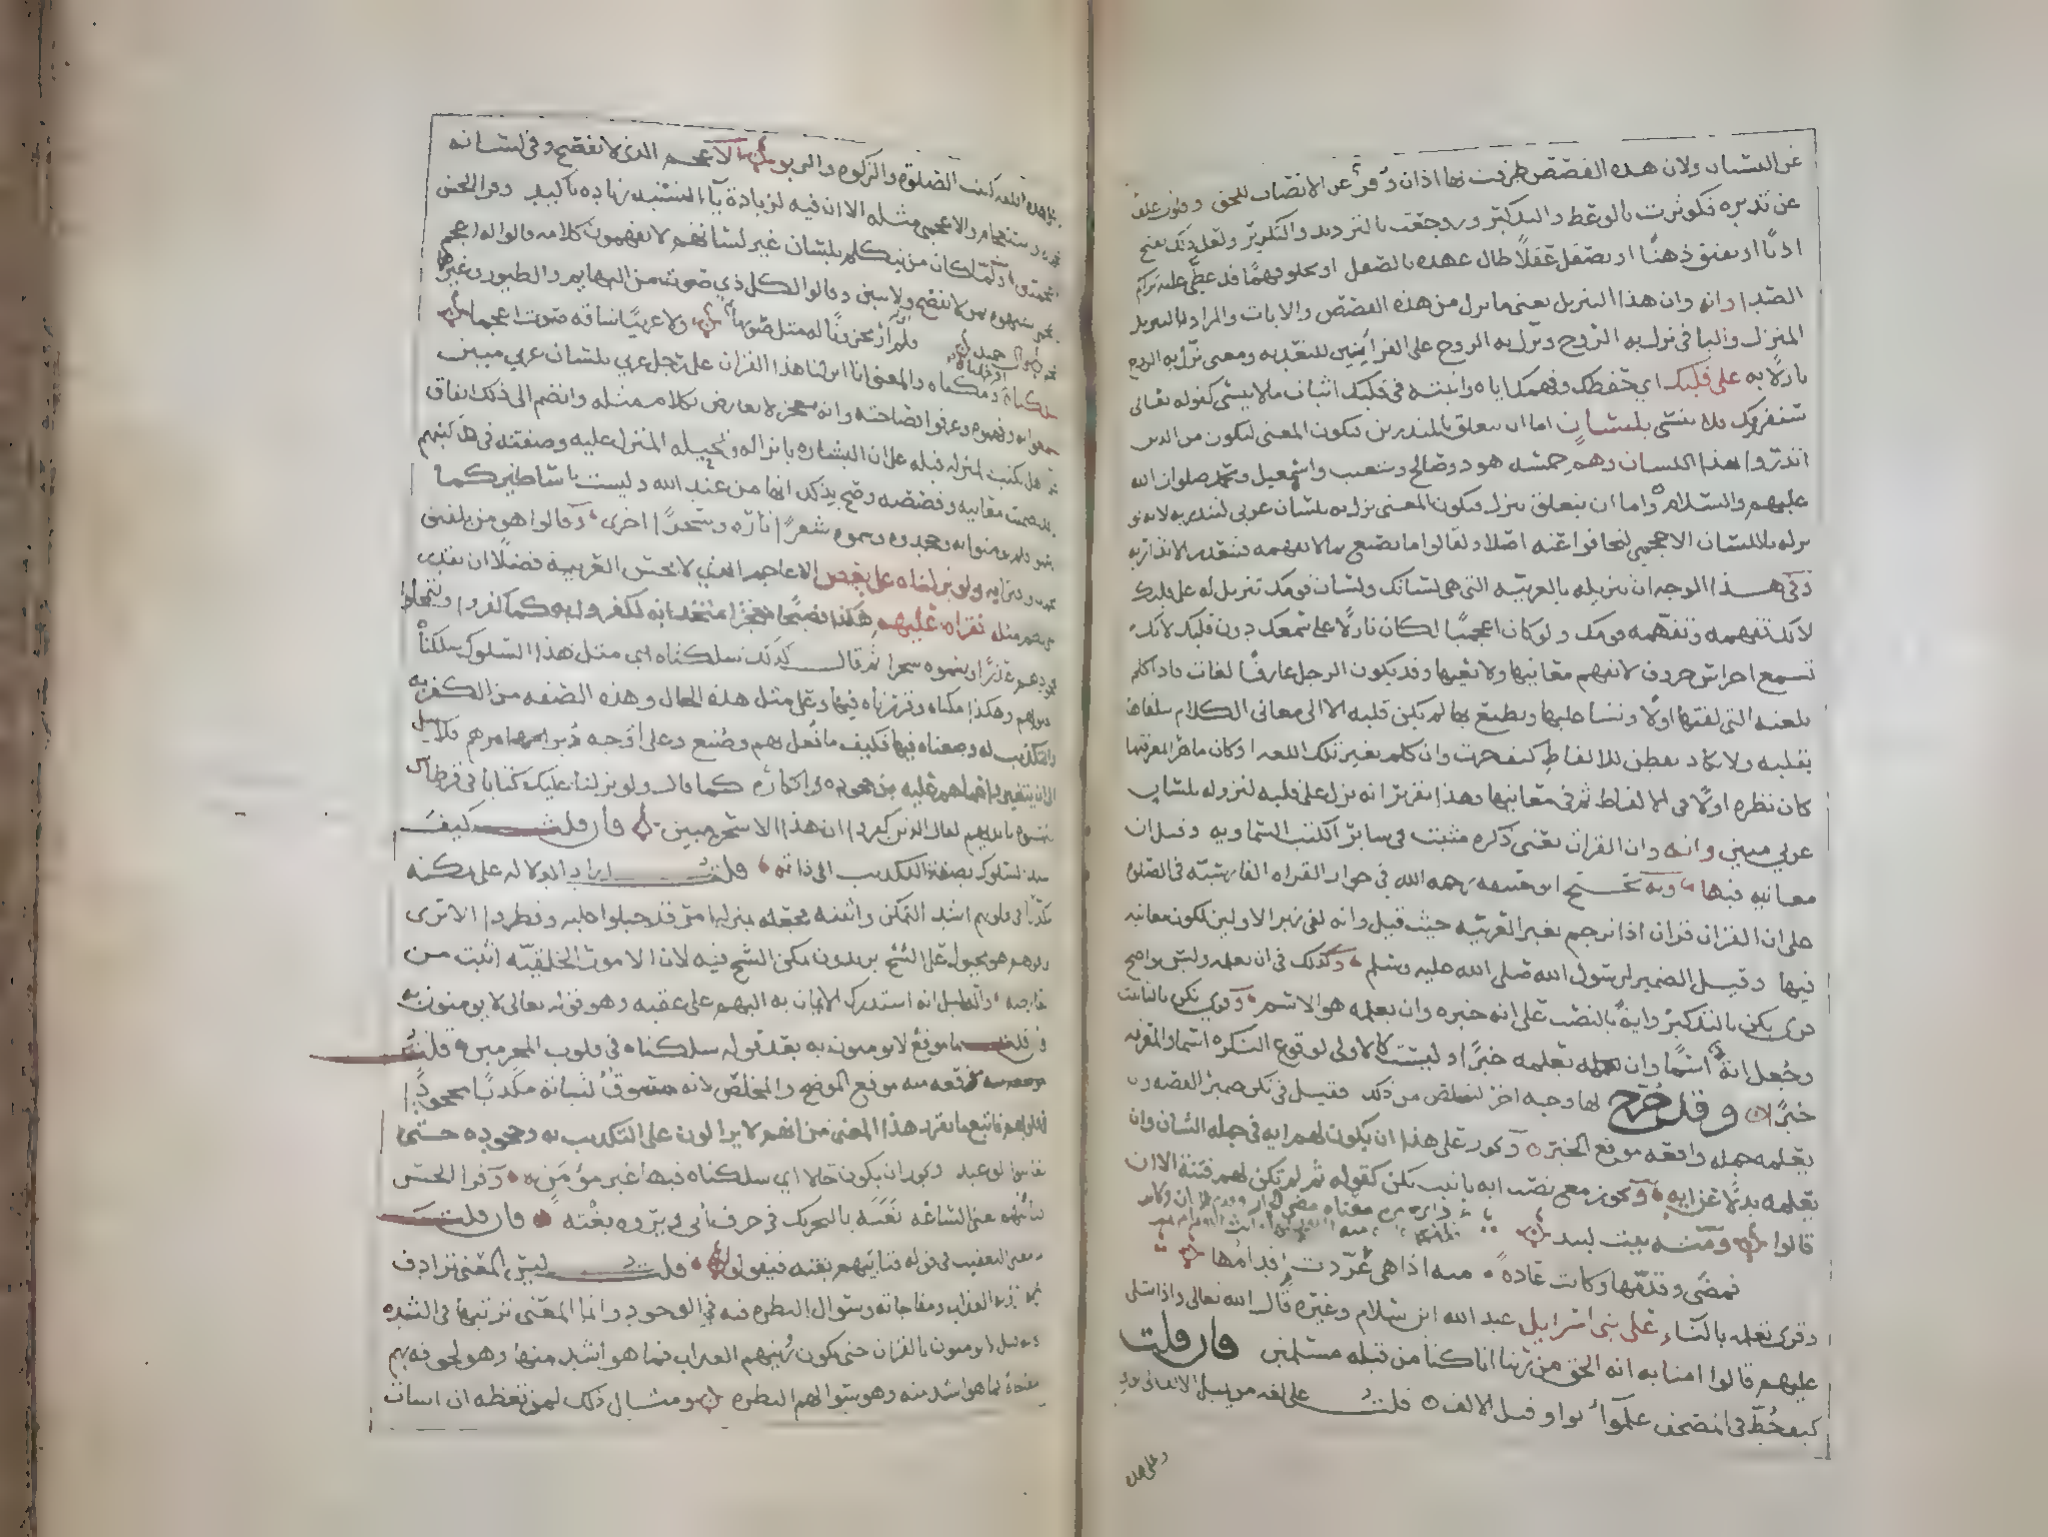 عن اللسان ولان هذه القصص طرقت بها اذان وقر عن الانصات للحق وقلوب غلف
عن تدبره فكوثرت بالوعظ والتذكير وروجعت بالترديد والتكرير ولعل ذلك يفتح
اذنا او يفتق ذهنا او يصقل عقلا طال عهده بالصقل او يجلو فهما قد غطى عليه تراكم
الصدا وانه وان هذا التنزيل يعنى ما نزل من هذه القصص والايات والمراد بالتنزيل
المنزل والبا في نزل به الروح ونزل به الروح على القرأتين للتعدية ومعنى نزل به الروح
نازلا به على قلبك اي حفظك وفهمك اياه واثبته في قلبك اثبات ما لا ينسى كقوله تعالى
سنقرئك فلا تنسى بلسان اما ان يتعلق بالمنذرين فيكون المعنى لتكون من الذين
انذروا بهذا اللسان وهم خمسه هود وصالح وشعيب واسمعيل ومحمد صلوات الله
عليهم والسلام واما ان يتعلق بنزل فيكون المعنى نزل به بلسان عربي لتنذر به لانه لو
نزله باللسان الاعجمي لتجافوا عنه اصلا ولقالوا ما نصنع بما لا نفهمه فيتعذر الانذار به
وفي هذا الوجه ان تنزيله بالعربيه التى هي لسانك ولسان قومك تنزيل له على قلبك
لانك تفهمه وتفهمه قومك ولو كان اعجميا لكان نازلا على سمعك دون قلبك لانك
تسمع اجراس حروف لا تفهم معانيها ولا تعيها وقد يكون الرجل عارفا لغات فاذا كلم
بلغته التي لقنها اولا ونشا عليها وتطبع بها لم يكن قلبه الا الى معاني الكلام يتلقاها
بقلبه ولا يكاد يفطن للالفاظ كيف جرت وان كلم بغير تلك اللغه او كان ماهرا بمعرفتها
كان نظره اولا في الالفاظ ثم في معانيها وهذا تقرير انه نزل على قلبه لنزوله بلسان
عربي مبين وانه وان القران يعنى ذكره مثبت في سائر الكتب السماويه وقيل ان
معانيه فيها وبه يحتج ابو حنيفه رحمه الله في جواز القراه الفارسيه في الصلوه
على ان القران قران اذا ترجم بغير العربيه حيث قيل وانه لفي زبر الاولين لكون معانيه
فيها وقيل الضمير لرسول الله صلى الله عليه وسلم وكذلك في ان يعلمه وليس بواضح
قرئ يكن بالتذكير واية بالنصب على انه خبره وان يعلمه هو الاسم وقرئ تكن بالتانيث
وجعل اية اسما وان يعلمه خبرا وليست كالاولى لوقوع النكره اسما والمعرفه
خبرا وقد خرج لها وجه اخر ليتخلص من ذلك فقيل في تكن ضمير القصه و
يعلمه جمله واقعه موقع الخبر ويجوز على هذا ان يكون لهم ايه في جمله الشان وان
يعلمه بدلا عن ايه ويجوز مع نصب ايه تانيث تكن كقوله ثم لم تكن لهم فتنة الا ان
قالوا ومنه بيت لبيد
فمضى وقدمها وكانت عادة منه اذا هي عردت اقدامها
وقرئ تعلمه بالتاء على بنى اسرائيل عبد الله ابن سلام وغيره قال الله تعالى واذا تتلى
عليهم قالوا امنا به انه الحق من ربنا انا كنا من قبله مسلمين فان قلت
كيف خط في المصحف علموا بواو قبل الالف قلت على لغه من يميل الالف الى الواو
وعلى هذه
هذه اللغه كتبت الصلوة والزكوة والربو الاعجم الذي لا يفصح وفي لسانه
عجمه واستعجام والاعجمي مثله الا ان فيه لزيادة ياء النسبه زياده تاكيد وقرا الحسن
الاعجميين ولما كان من يتكلم بلسان غير لسانهم لا يفهمون كلامه قالوا له اعجم
واعجمي شبهوه بمن لا يفصح ولا يبين وقالوا لكل ذي صوت من البهايم والطيور وغيرها
ولا عربيا شاقه صوت اعجما
سلكناه ادخلناه ومكناه والمعنى انا انزلنا هذا القران على رجل عربي بلسان عربي مبين
فسمعوا به وفهموه وعرفوا فصاحته وانه معجز لا يعارض بكلام مثله وانضم الى ذلك اتفاق
اهل الكتب المنزله قبله على ان البشاره بانزاله وتحليه المنزل عليه وصفته في كتبهم
وقد تضمنت معانيه وقصصه وصح بذلك انها من عند الله وليست باساطير كما
زعموا فلم يومنوا به وجحدوه وسموه شعرا تارة وسحرا اخرى وقالوا هو من تلفيق
محمد وافترايه ولو نزلناه على بعض الاعاجم الذي لا يحسن العربية فضلا ان يقدر
على نظم مثله فقراه عليهم هكذا فصيحا معجزا متحدى به لكفروا به كما كفروا ولتمحلوا
لجحودهم عذرا ولسموه سحرا ثم قال كذلك سلكناه اي مثل هذا السلوك سلكناه
في قلوبهم وهكذا مكناه وقررناه فيها وعلى مثل هذه الحال وهذه الصفه من الكفر به
والتكذيب له وضعناه فيها فكيف ما فعل بهم وصنع وعلى اي وجه دبر امرهم فلا سبيل
الى ان يتغيروا عما هم عليه من جحوده وانكاره كما قال ولو نزلنا عليك كتابا في قرطاس
فلمسوه بايديهم لقال الذين كفروا ان هذا الا سحر مبين فان قلت كيف
اسند السلوك بصفة التكذيب الى ذاته قلت اراد به الدلاله على تمكنه
مكذبا في قلوبهم اشد التمكن واثبته فجعله بمنزلة امر قد جبلوا عليه وفطروا الا ترى
الى قولهم هو مجبول على الشح يريدون تمكن الشح فيه لان الامور الخلقيه اثبت من
العارضه والدليل انه اسند ترك الايمان به اليهم على عقبه وهو قوله تعالى لا يومنون به
فان قلت ما موقع لا يومنون به بعد قوله سلكناه في قلوب المجرمين قلت
موقعه منه موقع الموضح والملخص لانه مسوق لثباته مكذبا مجحودا
في قلوبهم فاتبع ما يقرر هذا المعنى من انهم لا يزالون على التكذيب به وجحوده حتى
يعاينوا الوعيد ويجوز ان يكون حالا اي سلكناه فيها غير مؤمن به وقرا الحسن
فتأتيهم يعنى الساعه بغتة بالتحريك وفي حرف أبي ويروه بغته فان قلت
ما معنى التعقيب في قوله فتاتيهم بغته فيقولوا قلت ليس المعنى ترادف
رؤية العذاب ومفاجاته وسوال النظره فيه في الوجود وانما المعنى ترتيبها في الشده
كانه قيل لا يومنون بالقران حتى تكون رؤيتهم العذاب فما هو اشد منها وهو لحوقه بهم
مفاجأة فما هو اشد منه وهو سوالهم النظره ومثال ذلك لمن تعظه ان اسات